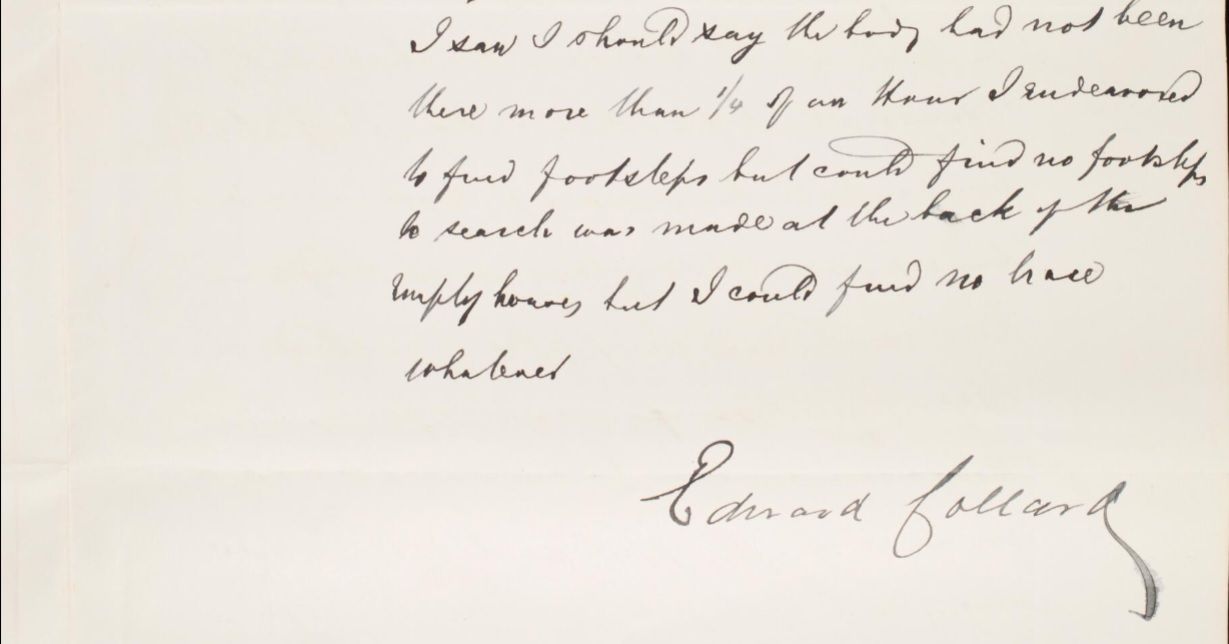 I saw I should say the body had not been
there more than 1/4 of an Hour I endeavored
to find footsteps but could find no footsteps
to search was made at the back of the
empty houses but I could find no trace
whatever
Edward Collard